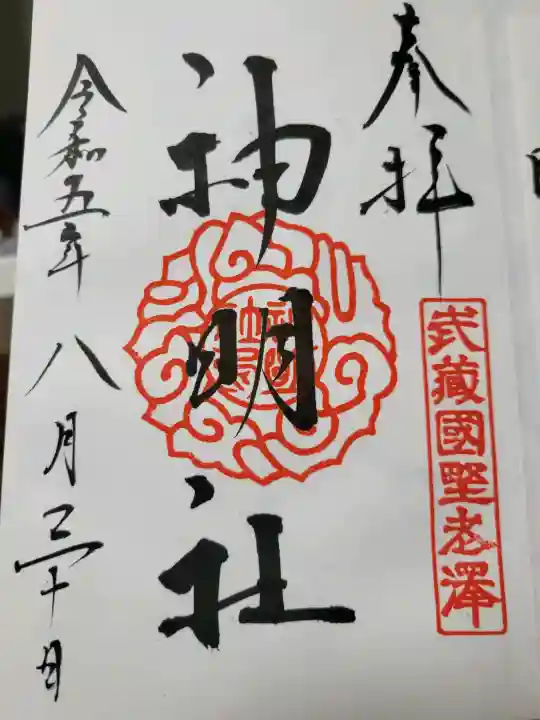 奉拝
武藏國埜老澤
神明社
令和五年八月三十日